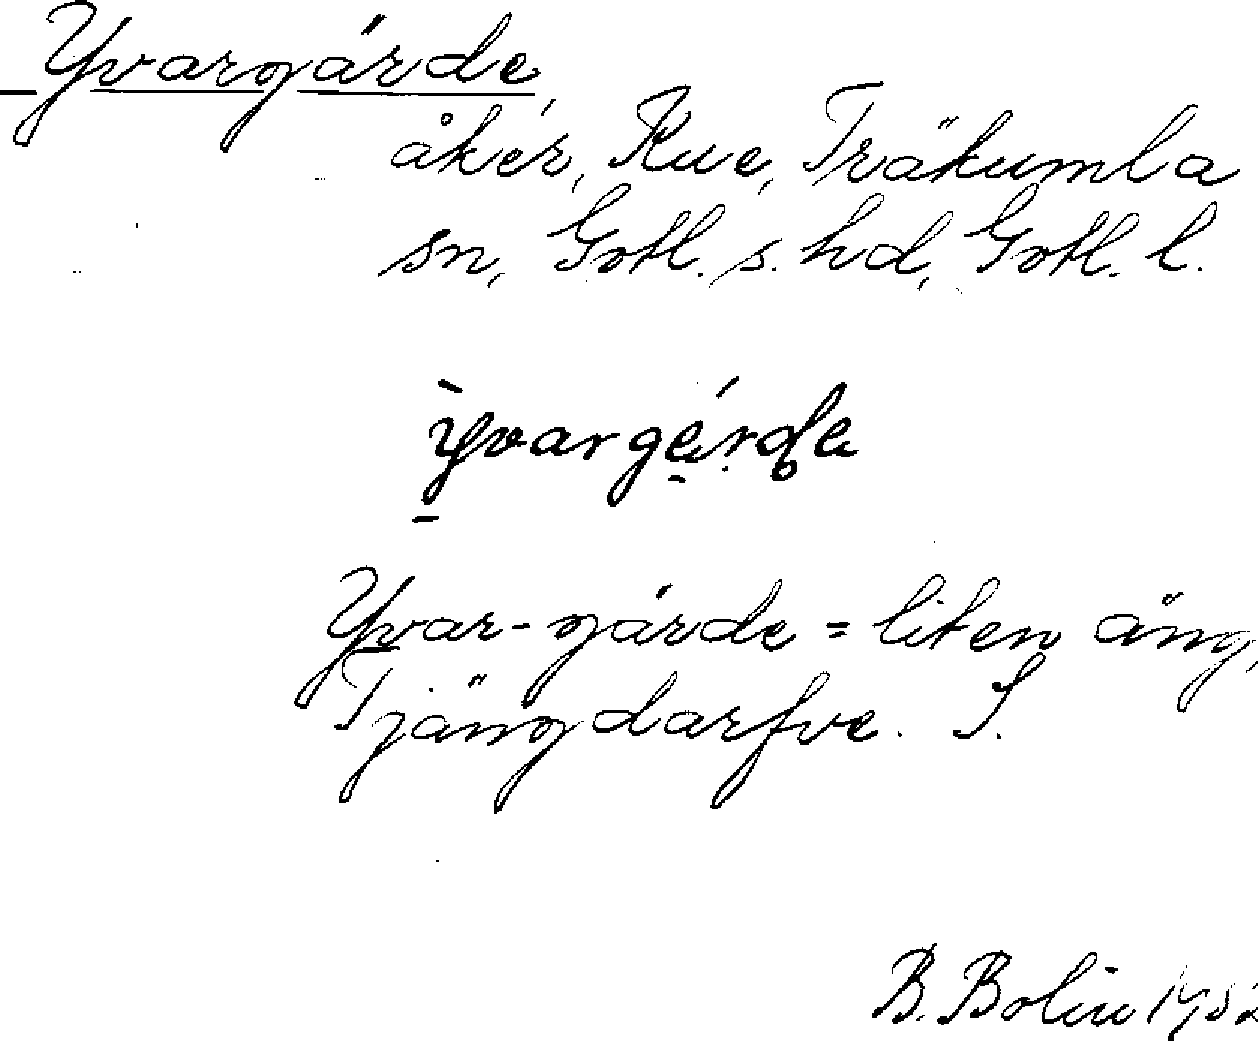 Yvargärde,
åker, Kue, Träkumla
sn, Gotl. s. hd, Gotl. l.
ỳvargárde
Yvar-gärde = liten äng,
Tjängdarfve. S.
B. Bolin 1932